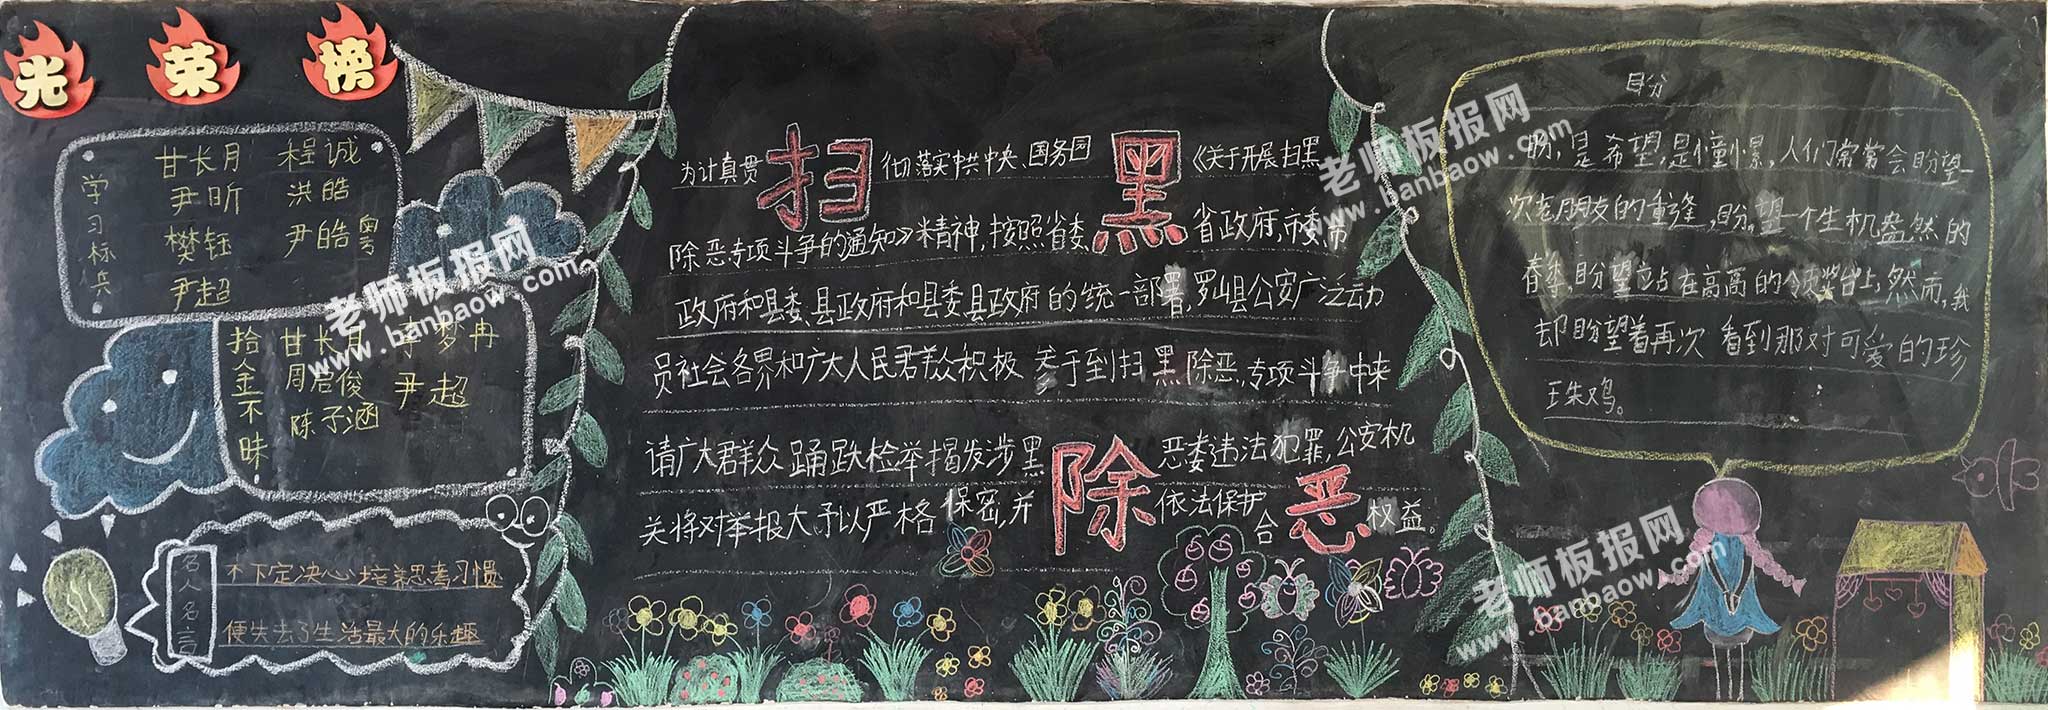 光荣榜
学习标兵
甘长月 程诚
尹昕 洪皓
樊钰 尹皓粤
尹超
拾金不昧
甘长月 李梦冉
周启俊 尹超
陈子涵
名人名言
不下定决心培养思考习惯
便失去了生活最大的乐趣
扫黑
除恶
为计真贯彻落实中共中央、国务园《关于开展扫黑
除恶专项斗争的通知》精神,按照省委、省政府,市委、市
政府和县委、县政府和县委县政府的统一部署,罗山县公安广泛动
员社会各界和广大人民君羊众积极 于到扫黑除恶,专项斗争中来
请广大群众踊跃检举揭发涉黑恶委违法犯罪,公安机
关将对举报大予以严格保密,并依法保护合权益。
盼
盼,是希望,是憧憬,人们常常会盼望一
次老朋友的重逢,盼望一个生机盎然的
春季,盼望站在高高的领奖台上,然而,我
却盼望着再次看到那对可爱的珍
珠鸡。
老师板报网
www.banbaow.com
老师板报网
www.banbaow.com
老师板报网
www.banbaow.com